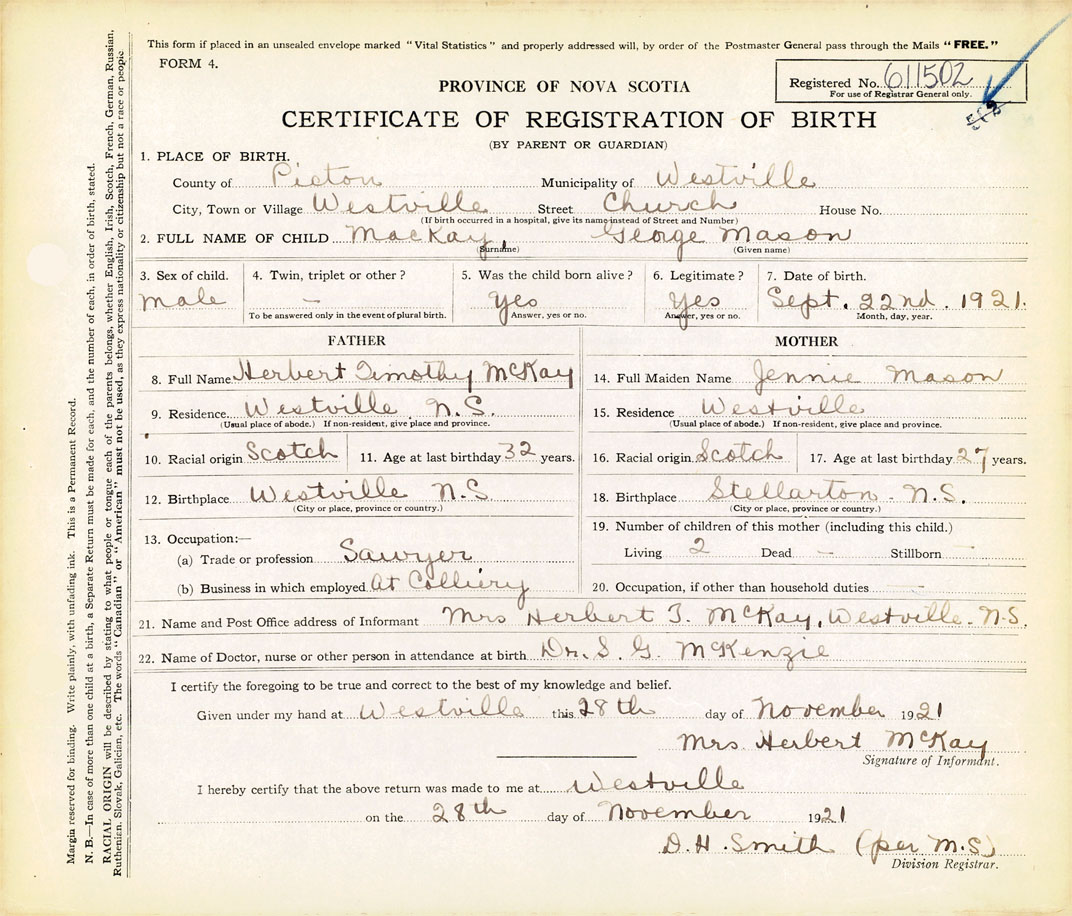 This form if placed in an unsealed envelope marked "Vital Statistics" and properly addressed will, by order of the Postmaster General pass through the Mails "FREE."
FORM 4.
Registered No. 611502
For use of Registrar General only.
PROVINCE OF NOVA SCOTIA
CERTIFICATE OF REGISTRATION OF BIRTH
(BY PARENT OR GUARDIAN)
1. PLACE OF BIRTH.
County of Picton Municipality of Westville
City, Town or Village Westville Street Church House No.
(If birth occurred in a hospital, give its name instead of Street and Number)
2. FULL NAME OF CHILD MacKay, George Mason
(Surname) (Given name)
3. Sex of child. 4. Twin, triplet or other? 5. Was the child born alive? 6. Legitimate? 7. Date of birth.
male — Yes Yes Sept. 22nd. 1921.
To be answered only in the event of plural birth. Answer, yes or no. Answer, yes or no. Month, day, year.
FATHER
8. Full Name Herbert Timothy McKay
9. Residence Westville N.S.
(Usual place of abode.) If non-resident, give place and province.
10. Racial origin Scotch 11. Age at last birthday 32 years.
12. Birthplace Westville N.S.
(City or place, province or country.)
13. Occupation:—
(a) Trade or profession Sawyer
(b) Business in which employed at Colliery
MOTHER
14. Full Maiden Name Jennie Mason
15. Residence Westville
(Usual place of abode.) If non-resident, give place and province.
16. Racial origin Scotch 17. Age at last birthday 27 years.
18. Birthplace Stellarton - N.S.
(City or place, province or country.)
19. Number of children of this mother (including this child.)
Living 2 Dead — Stillborn —
20. Occupation, if other than household duties —
21. Name and Post Office address of Informant Mrs Herbert T. McKay, Westville. N.S.
22. Name of Doctor, nurse or other person in attendance at birth Dr. S. G. McKenzie
I certify the foregoing to be true and correct to the best of my knowledge and belief.
Given under my hand at Westville this 28th day of November 1921
Mrs Herbert McKay
Signature of Informant.
I hereby certify that the above return was made to me at Westville
on the 28th day of November 1921
D. H. Smith (per M.S.)
Division Registrar.
Margin reserved for binding. Write plainly, with unfading ink. This is a Permanent Record.
N. B.—In case of more than one child at a birth, a Separate Return must be made for each, and the number of each, in order of birth, stated.
RACIAL ORIGIN will be described by stating to what people or tongue each of the parents belongs, whether English, Irish, Scotch, French, German, Russian,
Ruthenian, Slovak, Galician, etc. The words "Canadian" or "American" must not be used, as they express nationality or citizenship but not a race or people.